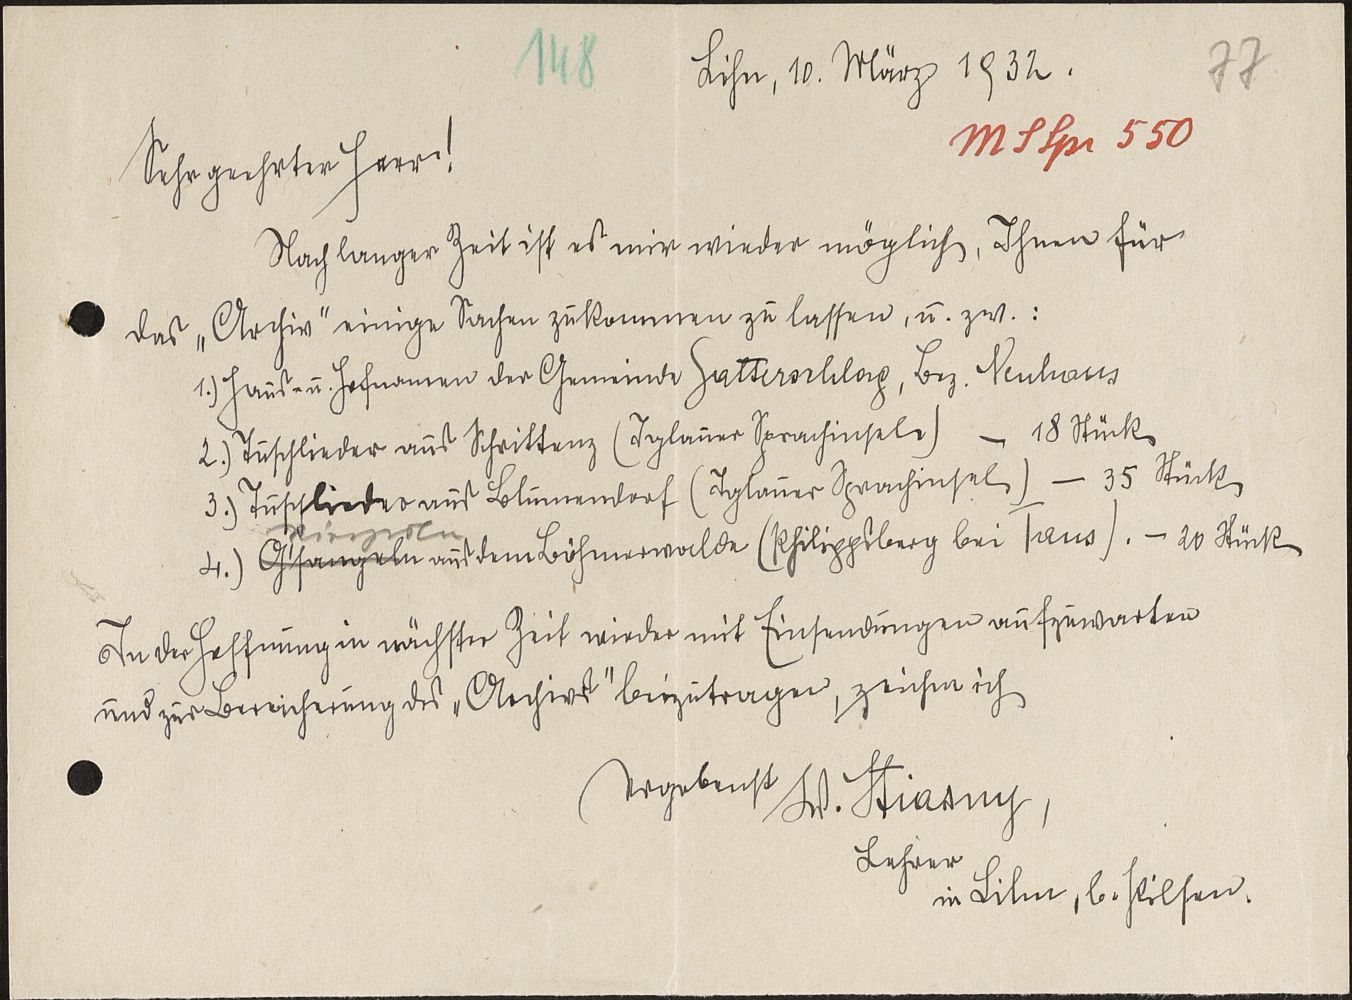 148
Lihn, 10. März 1932.
77
M S Spr 550
Sehr geehrter Herr!
Nach langer Zeit ist es mir wieder möglich, Ihnen für
das „Archiv" einige Sachen zukommen zu lassen, u. zw.:
1.) Haus- u. Hofnamen der Gemeinde Gatterschlag, Bez. Neuhaus
2.) Tuschlieder aus Schrittenz (Iglauer Sprachinsel) – 18 Stück
3.) Tuschlieder aus Blumendorf (Iglauer Sprachinsel) – 35 Stück
4.) G'sangeln aus dem Böhmerwalde (Philippsberg bei Taus). – 20 Stück
In der Hoffnung in nächster Zeit wieder mit Einsendungen aufzuwarten
und zur Bereicherung des „Archivs" beizutragen, zeichne ich
ergebenst W. Stiasny,
Lehrer
in Lihn, b. Pilsen.